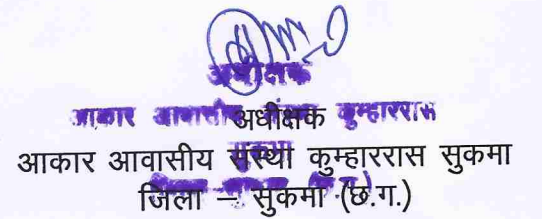 अधीक्षक
आकार आवासीय संस्था कुम्हाररास
अधीक्षक
आकार आवासीय संस्था कुम्हाररास सुकमा
जिला – सुकमा (छ.ग.)